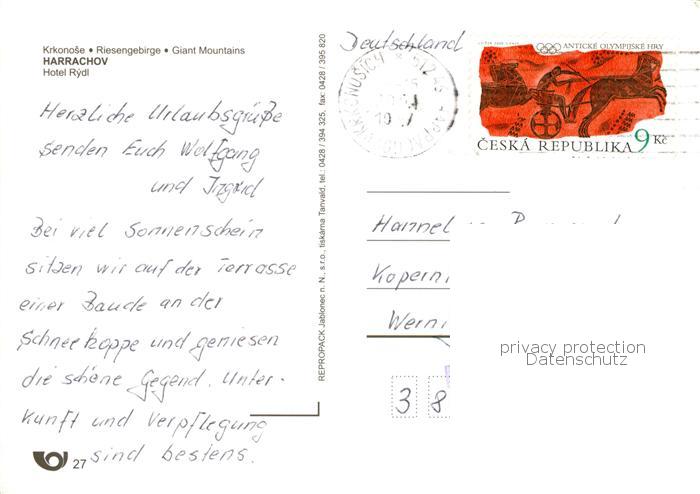 Krkonoše • Riesengebirge • Giant Mountains
HARRACHOV
Hotel Rýdl
Herzliche Urlaubsgrüße
senden Euch Wolfgang
und Ingrid
Bei viel Sonnenschein
sitzen wir auf der Terrasse
einer Baude an der
Schneekoppe und geniesen
die schöne Gegend. Unter-
kunft und Verpflegung
sind bestens.
27
REPROPACK Jablonec n. N., s.r.o., tiskárna Tanvald, tel.: 0428 / 394 325, fax: 0428 / 395 820
Deutschland
ANTICKÉ OLYMPIJSKÉ HRY
ČESKÁ REPUBLIKA 9 Kč
Hannel
Koperni
Werni
privacy protection
Datenschutz
3 8